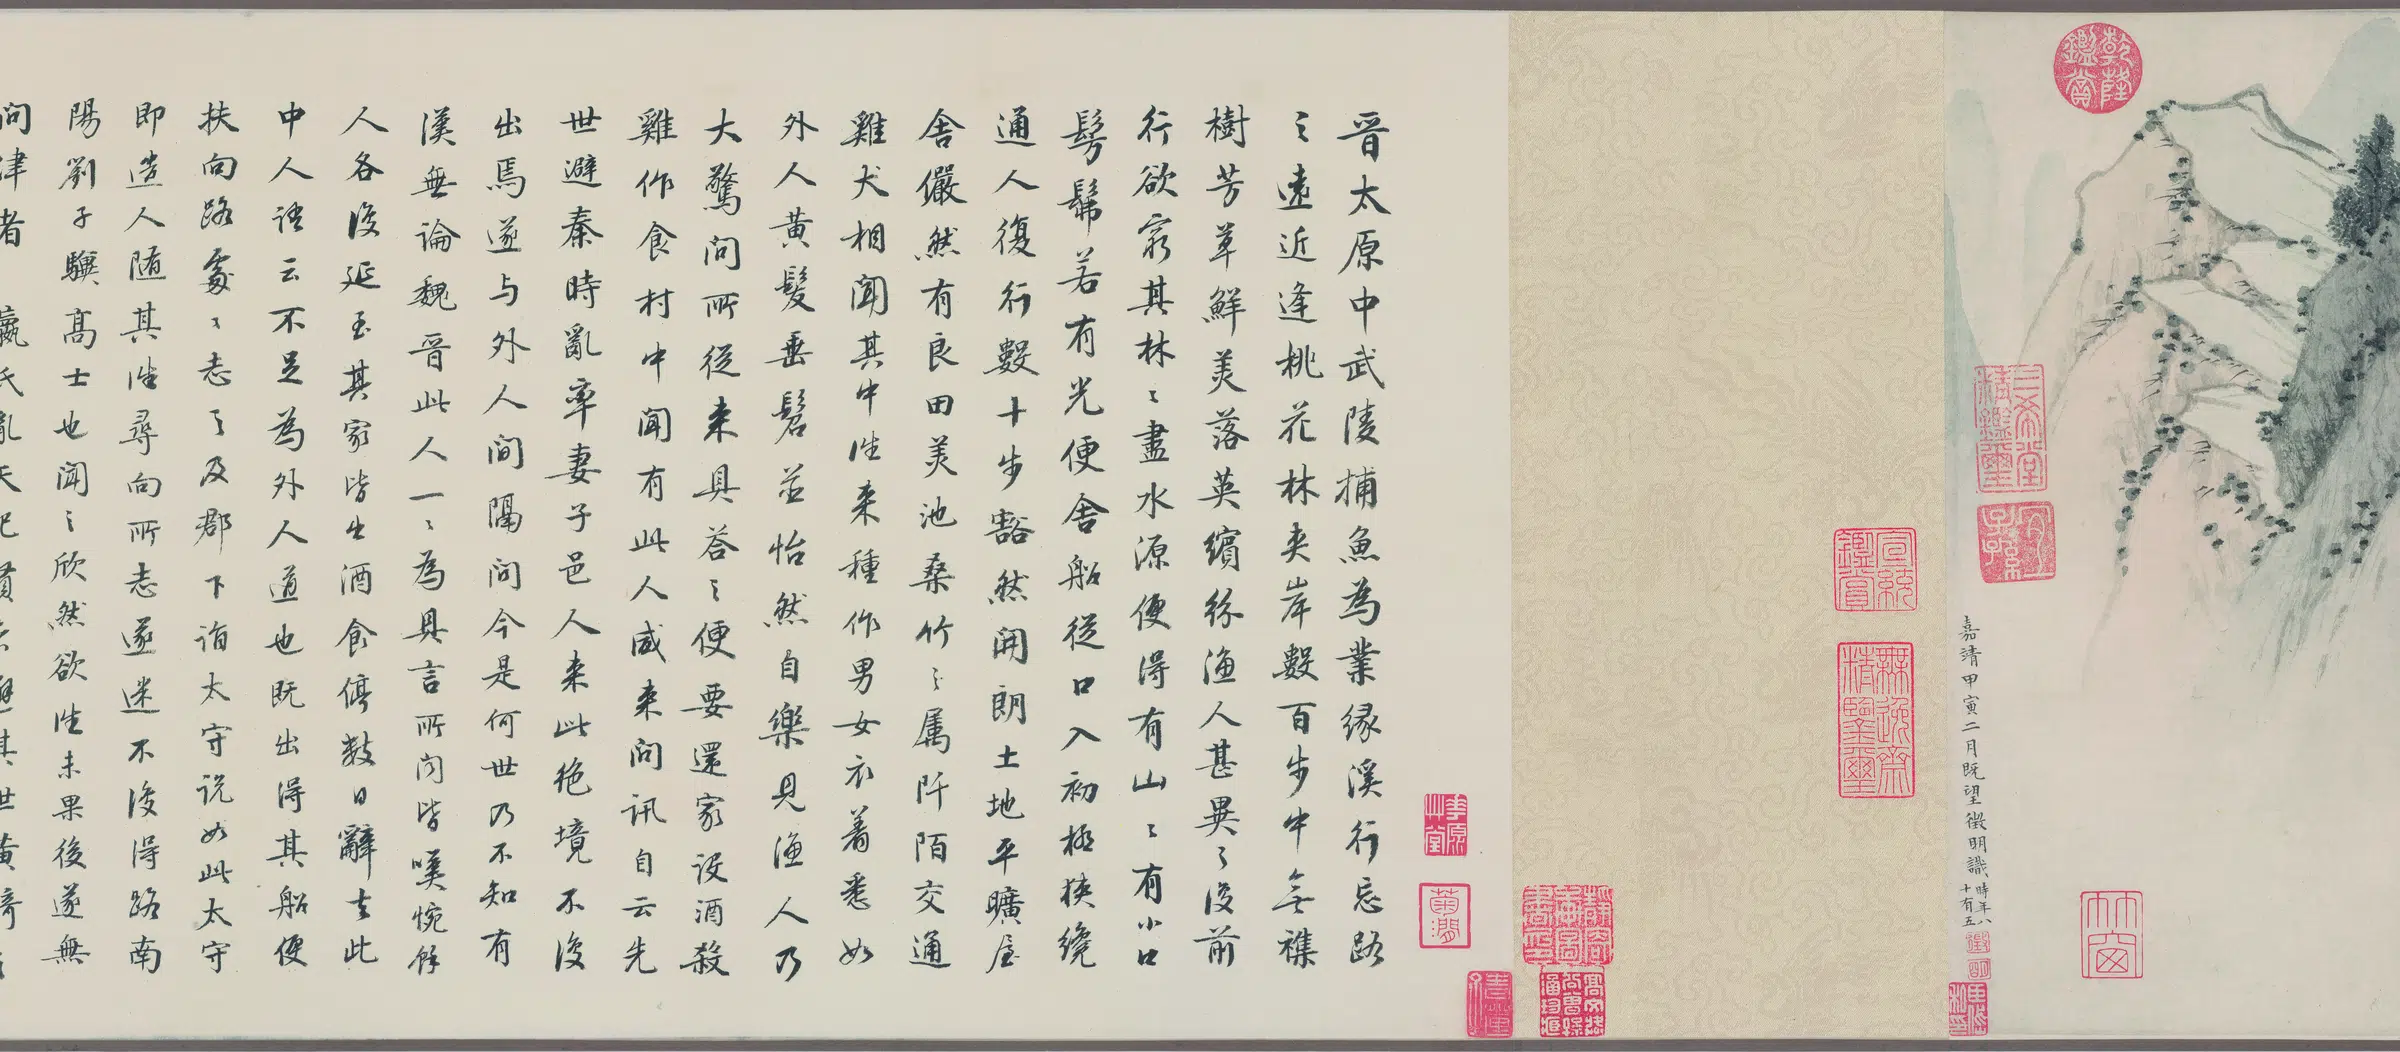 乾隆鑑賞
三希堂精鑑璽
宜子孫
嘉靖甲寅二月既望徵明識時年八十有五
竹窗
宣統鑑賞
無逸齋精鑒璽
晋太原中武陵捕魚為業緣溪行忘路
〻遠近逢桃花林夾岸數百步中無襍
樹芳草鮮美落英繽紛漁人甚異〻復前
行欲窮其林〻盡水源便得有山〻有小口
髣髴若有光便舍船從口入初極狹纔
通人復行數十步豁然開朗土地平曠屋
舍儼然有良田美池桑竹〻属阡陌交通
雞犬相聞其中往来種作男女衣着悉如
外人黄髮垂髫並怡然自樂見漁人乃
大驚問所從来具荅〻便要還家設酒殺
雞作食村中聞有此人咸来問訊自云先
世避秦時亂率妻子邑人来此絶境不復
出焉遂与外人間隔問今是何世乃不知有
漢無論魏晋此人一〻為具言所问皆嘆惋餘
人各復延至其家皆出酒食停数日辭去此
中人语云不足為外人道也既出得其船便
扶向路處〻志之及郡下詣太守说如此太守
即造人随其往尋向所志遂迷不復得路南
陽劉子驥高士也聞〻欣然欲往未果後遂無
问津者 嬴氏亂天紀賢者避其世黄綺